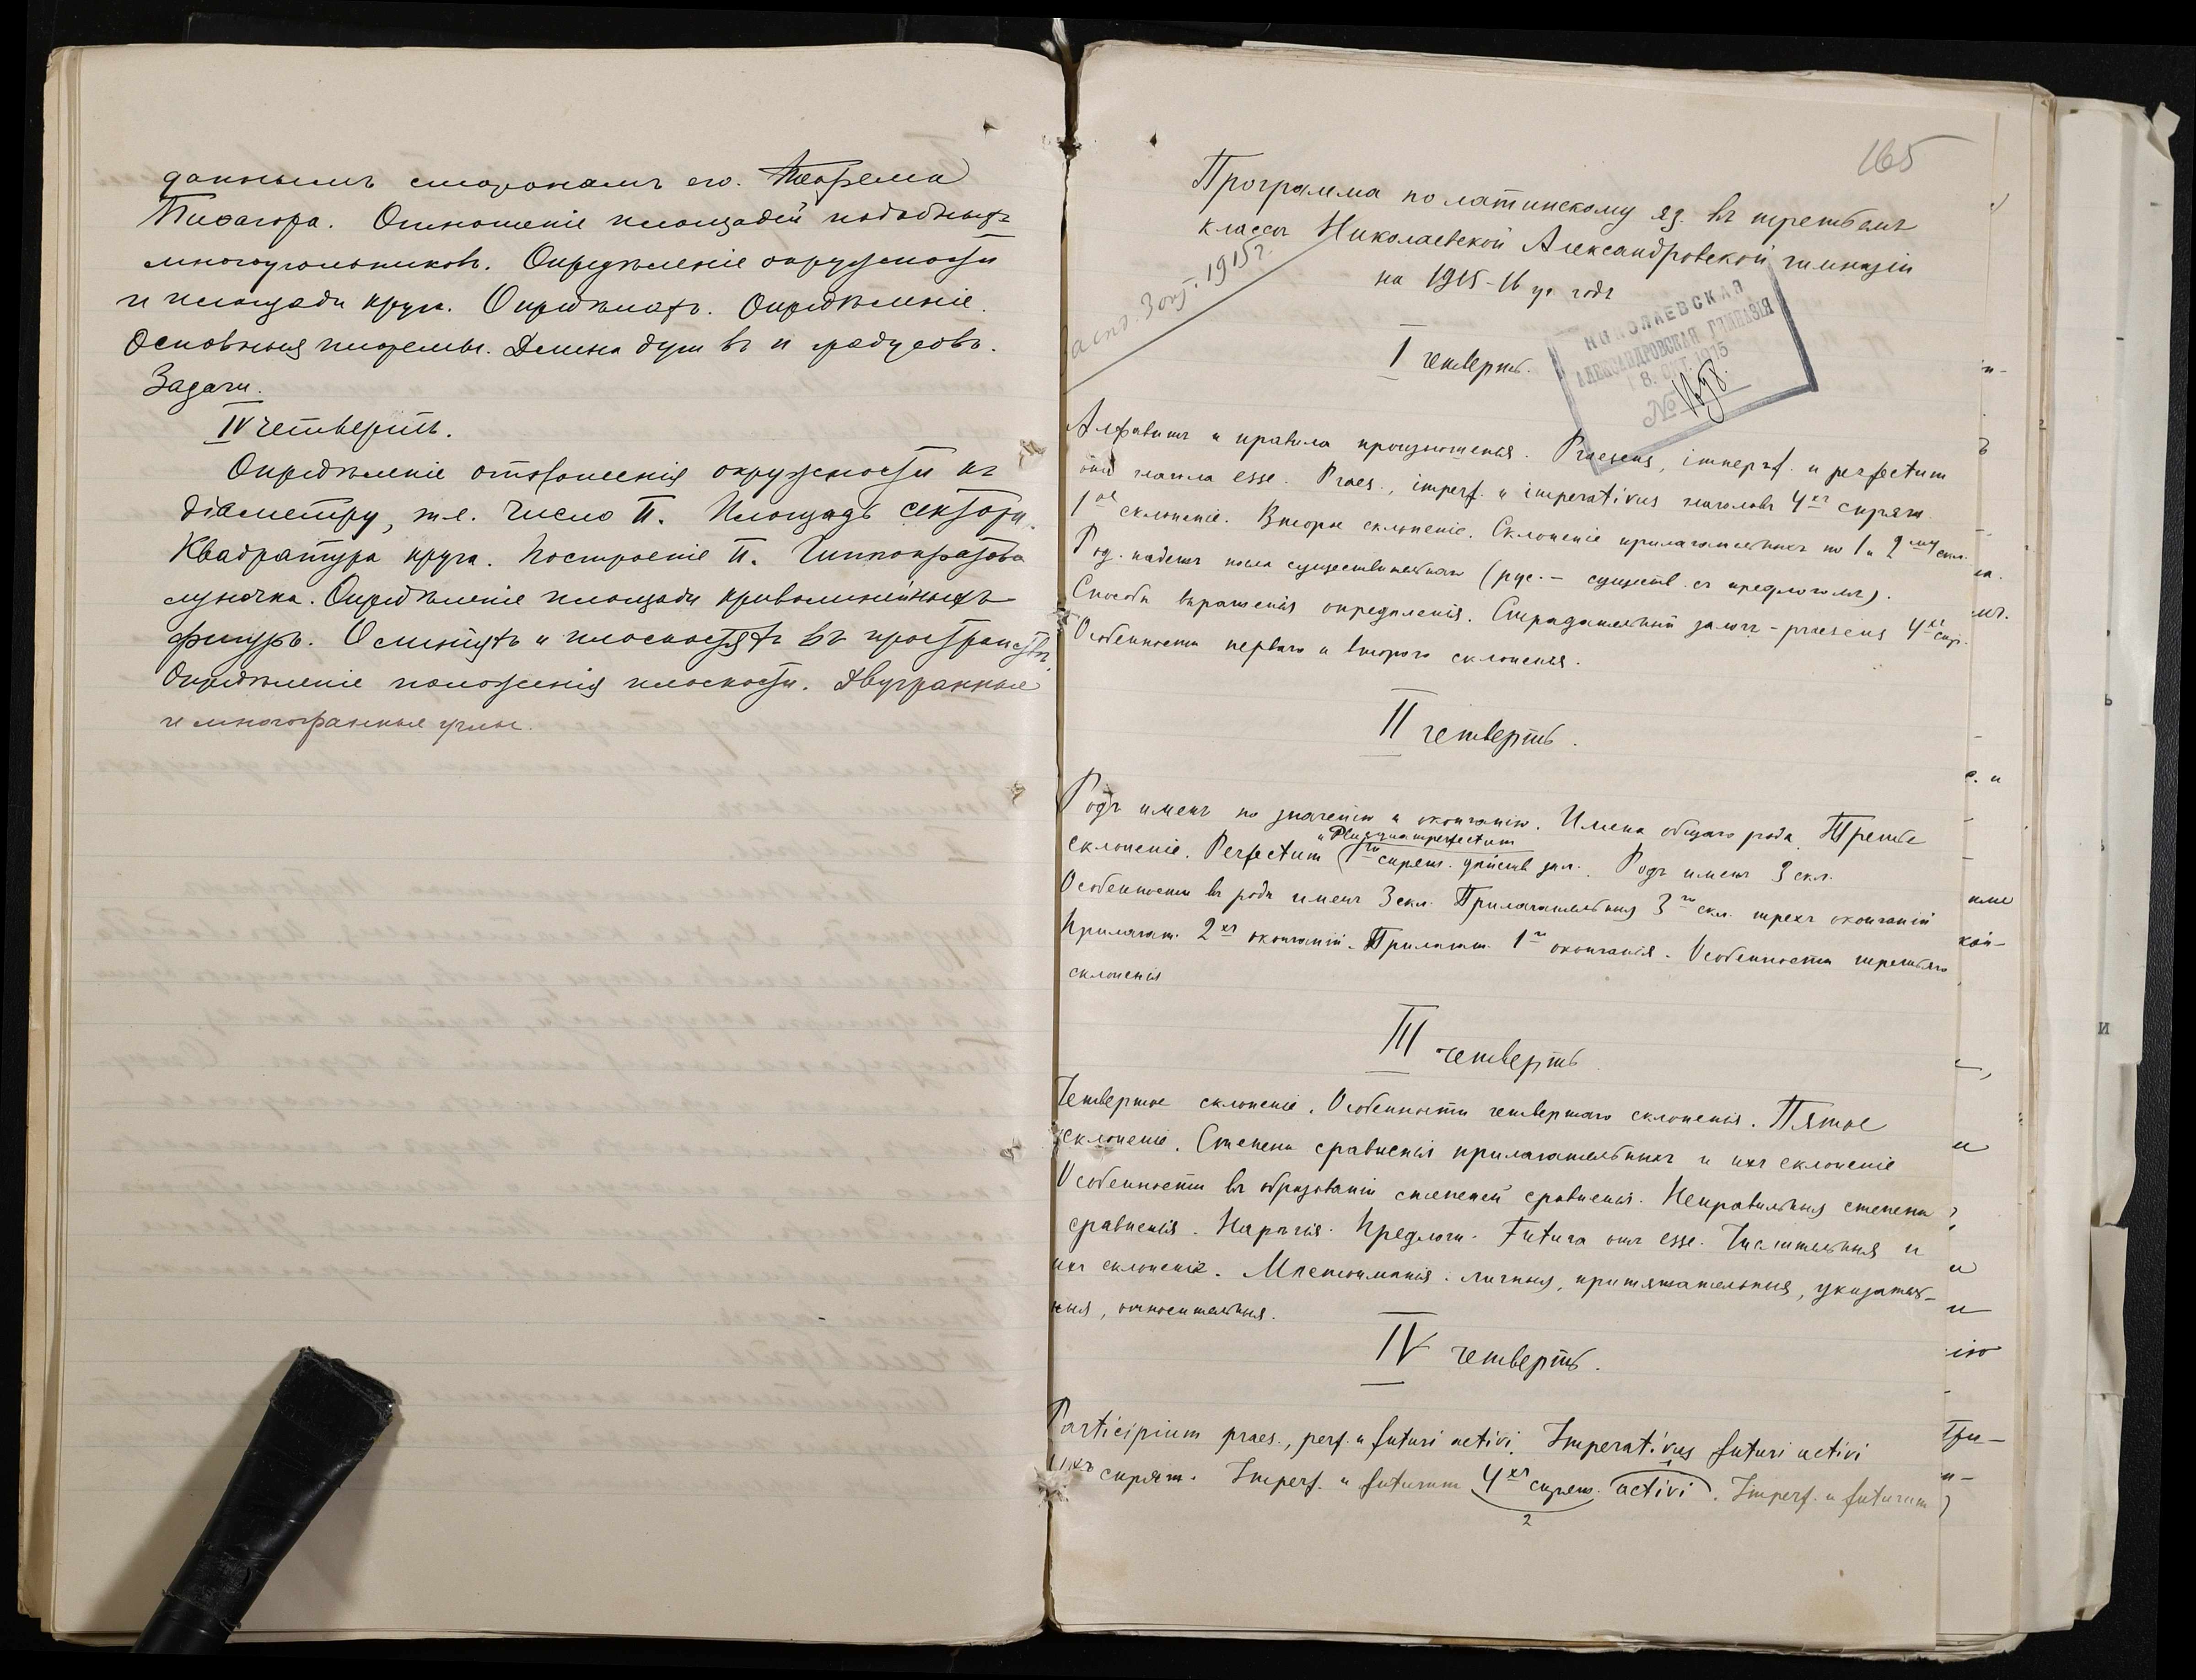 даннымъ сторонамъ его. Теорема
Пиѳагора. Отношеніе площадей подобныхъ
многоугольниковъ. Опредѣленіе окружности
и площади круга. О предѣлахъ. Опредѣленіе.
Основныя теоремы. Длина дуги въ n градусовъ.
Задачи.
IV четверть.
Опредѣленіе отношенія окружности къ
діаметру, т.е. число π. Площадь сектора.
Квадратура круга. Построеніе π. Гиппократова
луночка. Опредѣленіе площади криволинейныхъ
фигуръ. О линіяхъ и плоскостяхъ въ пространствѣ.
Опредѣленіе положенія плоскости. Двугранные
и многогранные углы.
165
Программа по латинскому яз. въ третьемъ
классѣ Николаевской Александровской гимназіи
на 1915-16 уч. годъ
3 окт. 1915 г.
НИКОЛАЕВСКАЯ
АЛЕКСАНДРОВСКАЯ ГИМНАЗІЯ
8. ОКТ. 1915
№
I четверть.
Алфавитъ и правила произношенія. Praesens, imperf. и perfectum
отъ глагола esse. Praes., imperf. и imperativus глаголовъ 4хъ спряж.
1ое склоненіе. Второе склоненіе. Склоненіе прилагательныхъ по 1 и 2му скл.
Род. падежъ послѣ существительнаго (рус. - существ. съ предлогомъ).
Способы выраженія опредѣленія. Страдательный залогъ - praesens 4хъ спр.
Особенности перваго и второго склоненія.
II четверть.
Родъ именъ по значенію и окончанію. Имена общаго рода. Третье
и Plusquamperfectum
склоненіе. Perfectum (1го спряж. дѣйств. зал. Родъ именъ 3 скл.
Особенности въ родѣ именъ 3 скл. Прилагательныя 3го скл. трехъ окончаній
Прилагат. 2хъ окончаній. Прилагат. 1го окончанія. Особенности третьяго
склоненія
III четверть
Четвертое склоненіе. Особенности четвертаго склоненія. Пятое
склоненіе. Степени сравненія прилагательныхъ и ихъ склоненіе
Особенности въ образованіи степеней сравненія. Неправильныя степени
сравненія. Нарѣчія. Предлоги. Futura отъ esse. Числительныя и
ихъ склоненіе. Мѣстоименія: личныя, притяжательныя, указатель-
ныя, относительныя.
IV четверть.
Participium praes., perf. и futuri activi. Imperativus futuri activi
4хъ спряж. Imperf. и futurum 4хъ спряж. activi. Imperf. и futurum
1
2